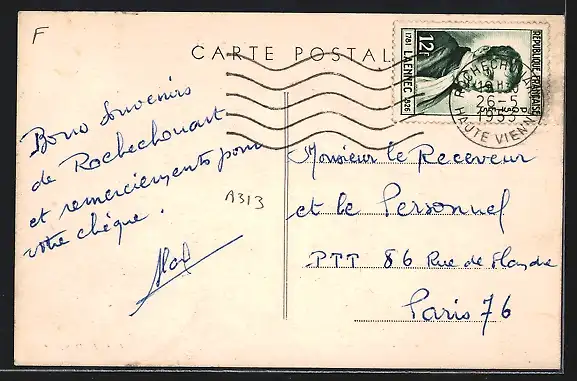 F
CARTE POSTALE
Bons souvenirs
de Rochechouart
et remerciements pour
votre chèque.
A313
12F
1781 LAENNEC 1826
REPUBLIQUE FRANÇAISE
POSTES
ROCHECHOUART
26-5
HAUTE VIENNE
Monsieur le Receveur
et le Personnel
PTT 86 Rue de Flandre
Paris 76